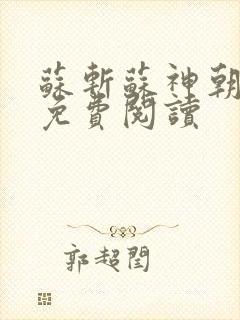 蘇斬蘇神朝
免費閱讀
郭超閏